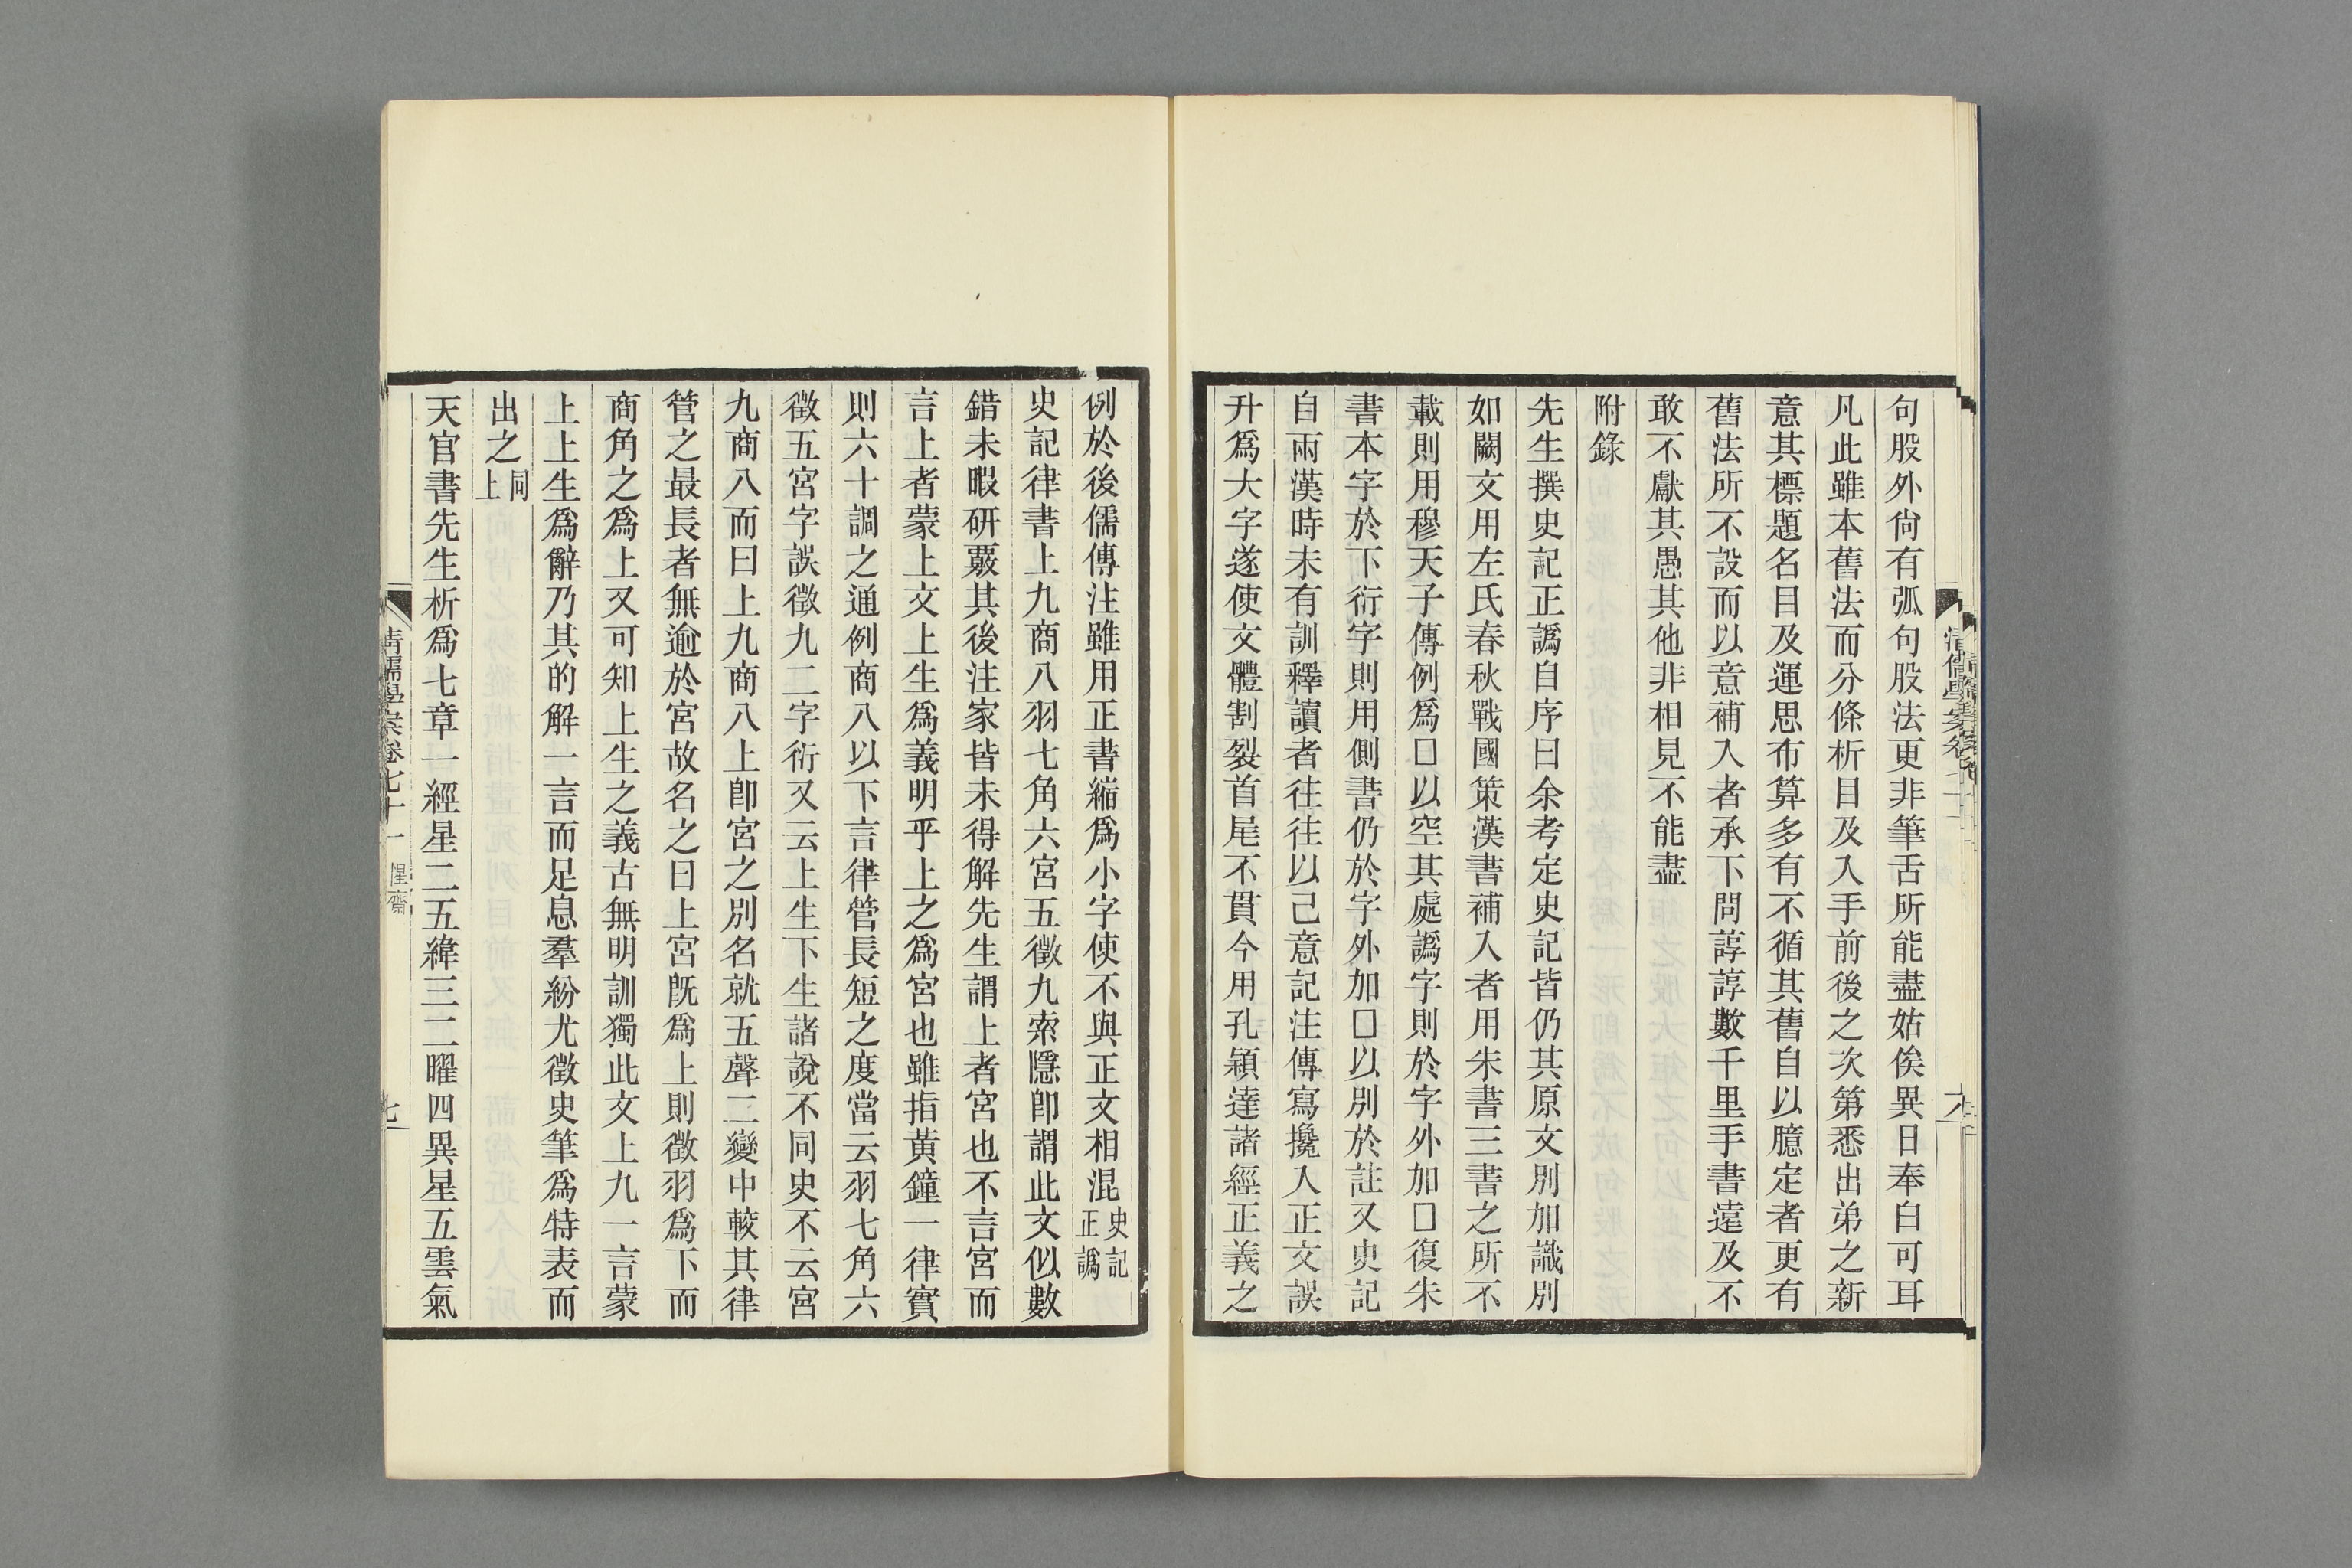 句股外尙有弧句股法更非筆舌所能盡姑俟異日奉白可耳
凡此雖本舊法而分條析目及入手前後之次第悉出弟之新
意其標題名目及運思布算多有不循其舊自以臆定者更有
舊法所不設而以意補入者承下問諄諄數千里手書遠及不
敢不獻其愚其他非相見不能盡
附錄
先生撰史記正譌自序曰余考定史記皆仍其原文別加識別
如闕文用左氏春秋戰國策漢書補入者用朱書三書之所不
載則用穆天子傳例爲□以空其處譌字則於字外加□復朱
書本字於下衍字則用側書仍於字外加□以別於註又史記
自兩漢時未有訓釋讀者往往以己意記注傳寫攙入正文誤
升爲大字遂使文體割裂首尾不貫今用孔穎達諸經正義之
例於後儒傳注雖用正書縮爲小字使不與正文相混史記正譌
史記律書上九商八羽七角六宮五徵九索隱卽謂此文似數
錯未暇硏覈其後注家皆未得解先生謂上者宮也不言宮而
言上者蒙上文上生爲義明乎上之爲宮也雖指黃鐘一律實
則六十調之通例商八以下言律管長短之度當云羽七角六
徵五宮字誤徵九二字衍又云上生下生諸說不同史不云宮
九商八而曰上九商八上卽宮之別名就五聲二變中較其律
管之最長者無逾於宮故名之曰上宮旣爲上則徵羽爲下而
商角之爲上又可知上生之義古無明訓獨此文上九一言蒙
上上生爲辭乃其的解一言而足息羣紛尤徵史筆爲特表而
出之同上
天官書先生析爲七章一經星二五緯三二曜四異星五雲氣
清儒學案卷七十一 惺齋 七